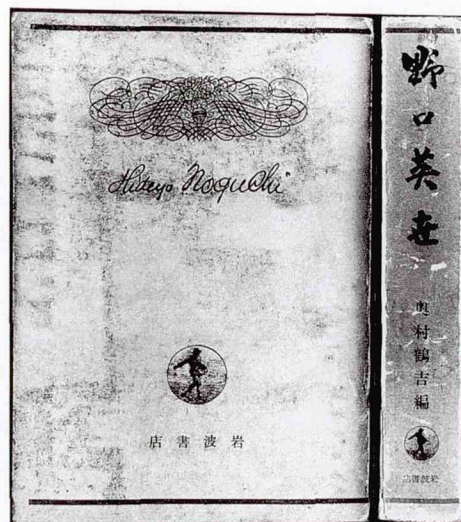 Hideyo Noguchi
店書波岩
野口英世
奥村鶴吉編
店書波岩